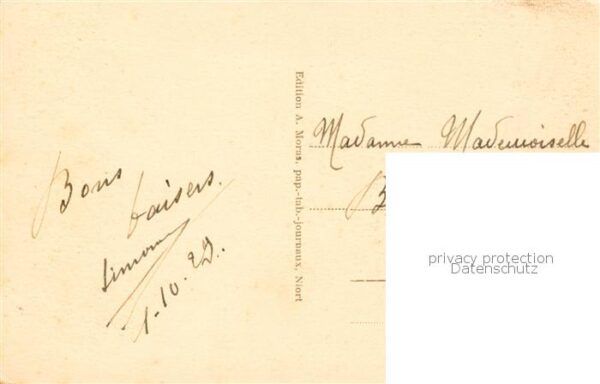 Bons
baisers.
Simone
1-10.29.
Edition A. Moras, pap.-tab.-journaux, Niort
Madame Mademoiselle
B
privacy protection
Datenschutz